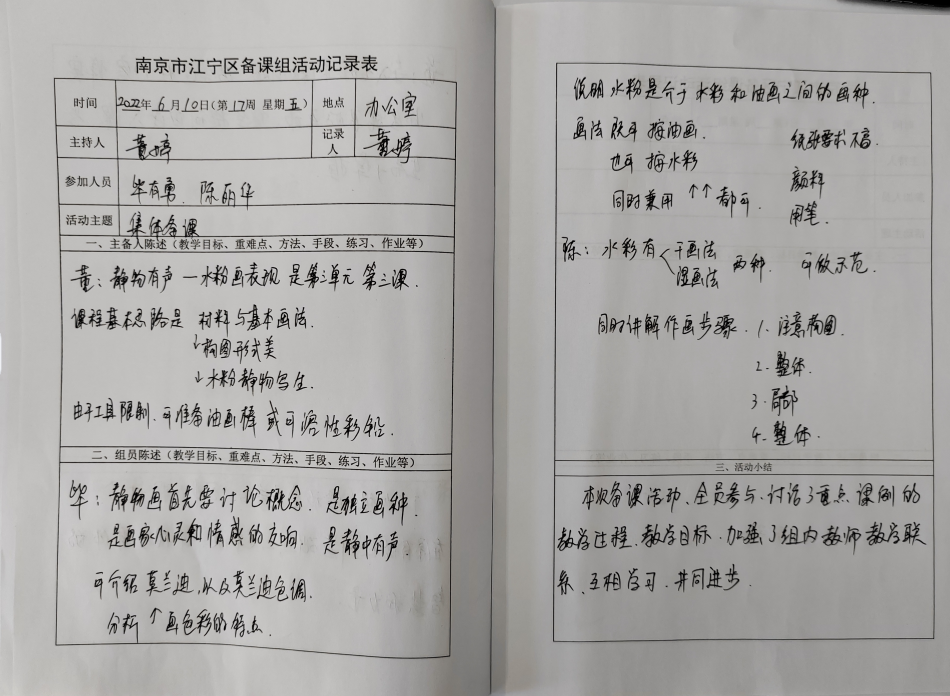 南京市江宁区备课组活动记录表
时间 2022年6月10日(第17周 星期五) 地点 办公室
主持人 董婷 记录人 董婷
参加人员 毕有勇、陈丽华
活动主题 集体备课
一、主备人陈述(教学目标、重难点、方法、手段、练习、作业等)
董:静物有声—水粉画表现 是第三单元 第三课.
课程基本思路是 材料与基本画法.
↓构图形式美
↓水粉静物写生.
由于工具限制.可准备油画棒 或可溶性彩铅.
二、组员陈述(教学目标、重难点、方法、手段、练习、作业等)
毕:静物画首先要讨论概念. 是独立画种.
是画家心灵和情感的交响. 是静中有声.
可介绍莫兰迪,以及莫兰迪色调.
分析↑画色彩的特点.
说明水粉是介于水彩和油画之间的画种.
画法 既可 按油画. 纸张要求不高
也可 按水彩 颜料
同时兼用 ↑↑ 都可. 用笔.
陈:水彩有 干画法 湿画法 两种. 可做示范.
同时讲解作画步骤. 1. 注意构图.
2. 整体.
3. 局部
4. 整体.
三、活动小结
本次备课活动、全员参与、讨论了重点 课例的
教学过程、教学目标.加强了组内教师教学联
系、互相学习、共同进步.